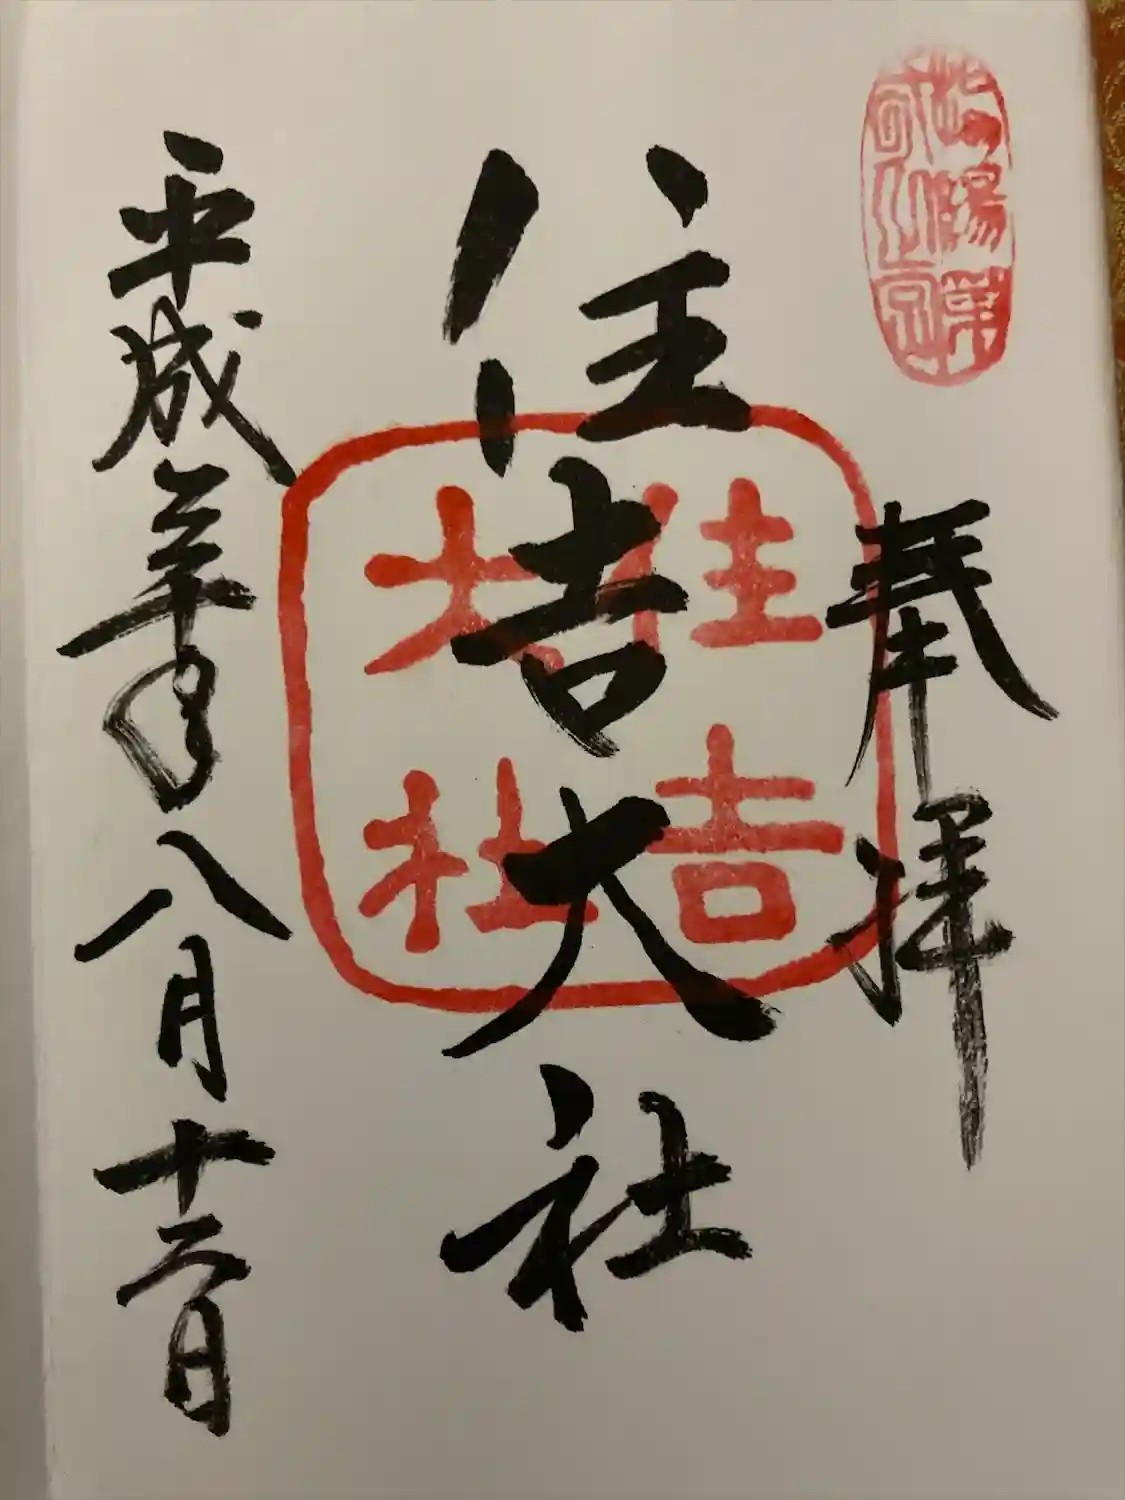 奉拝
住吉大社
住吉
大社
平成三十年八月十二日